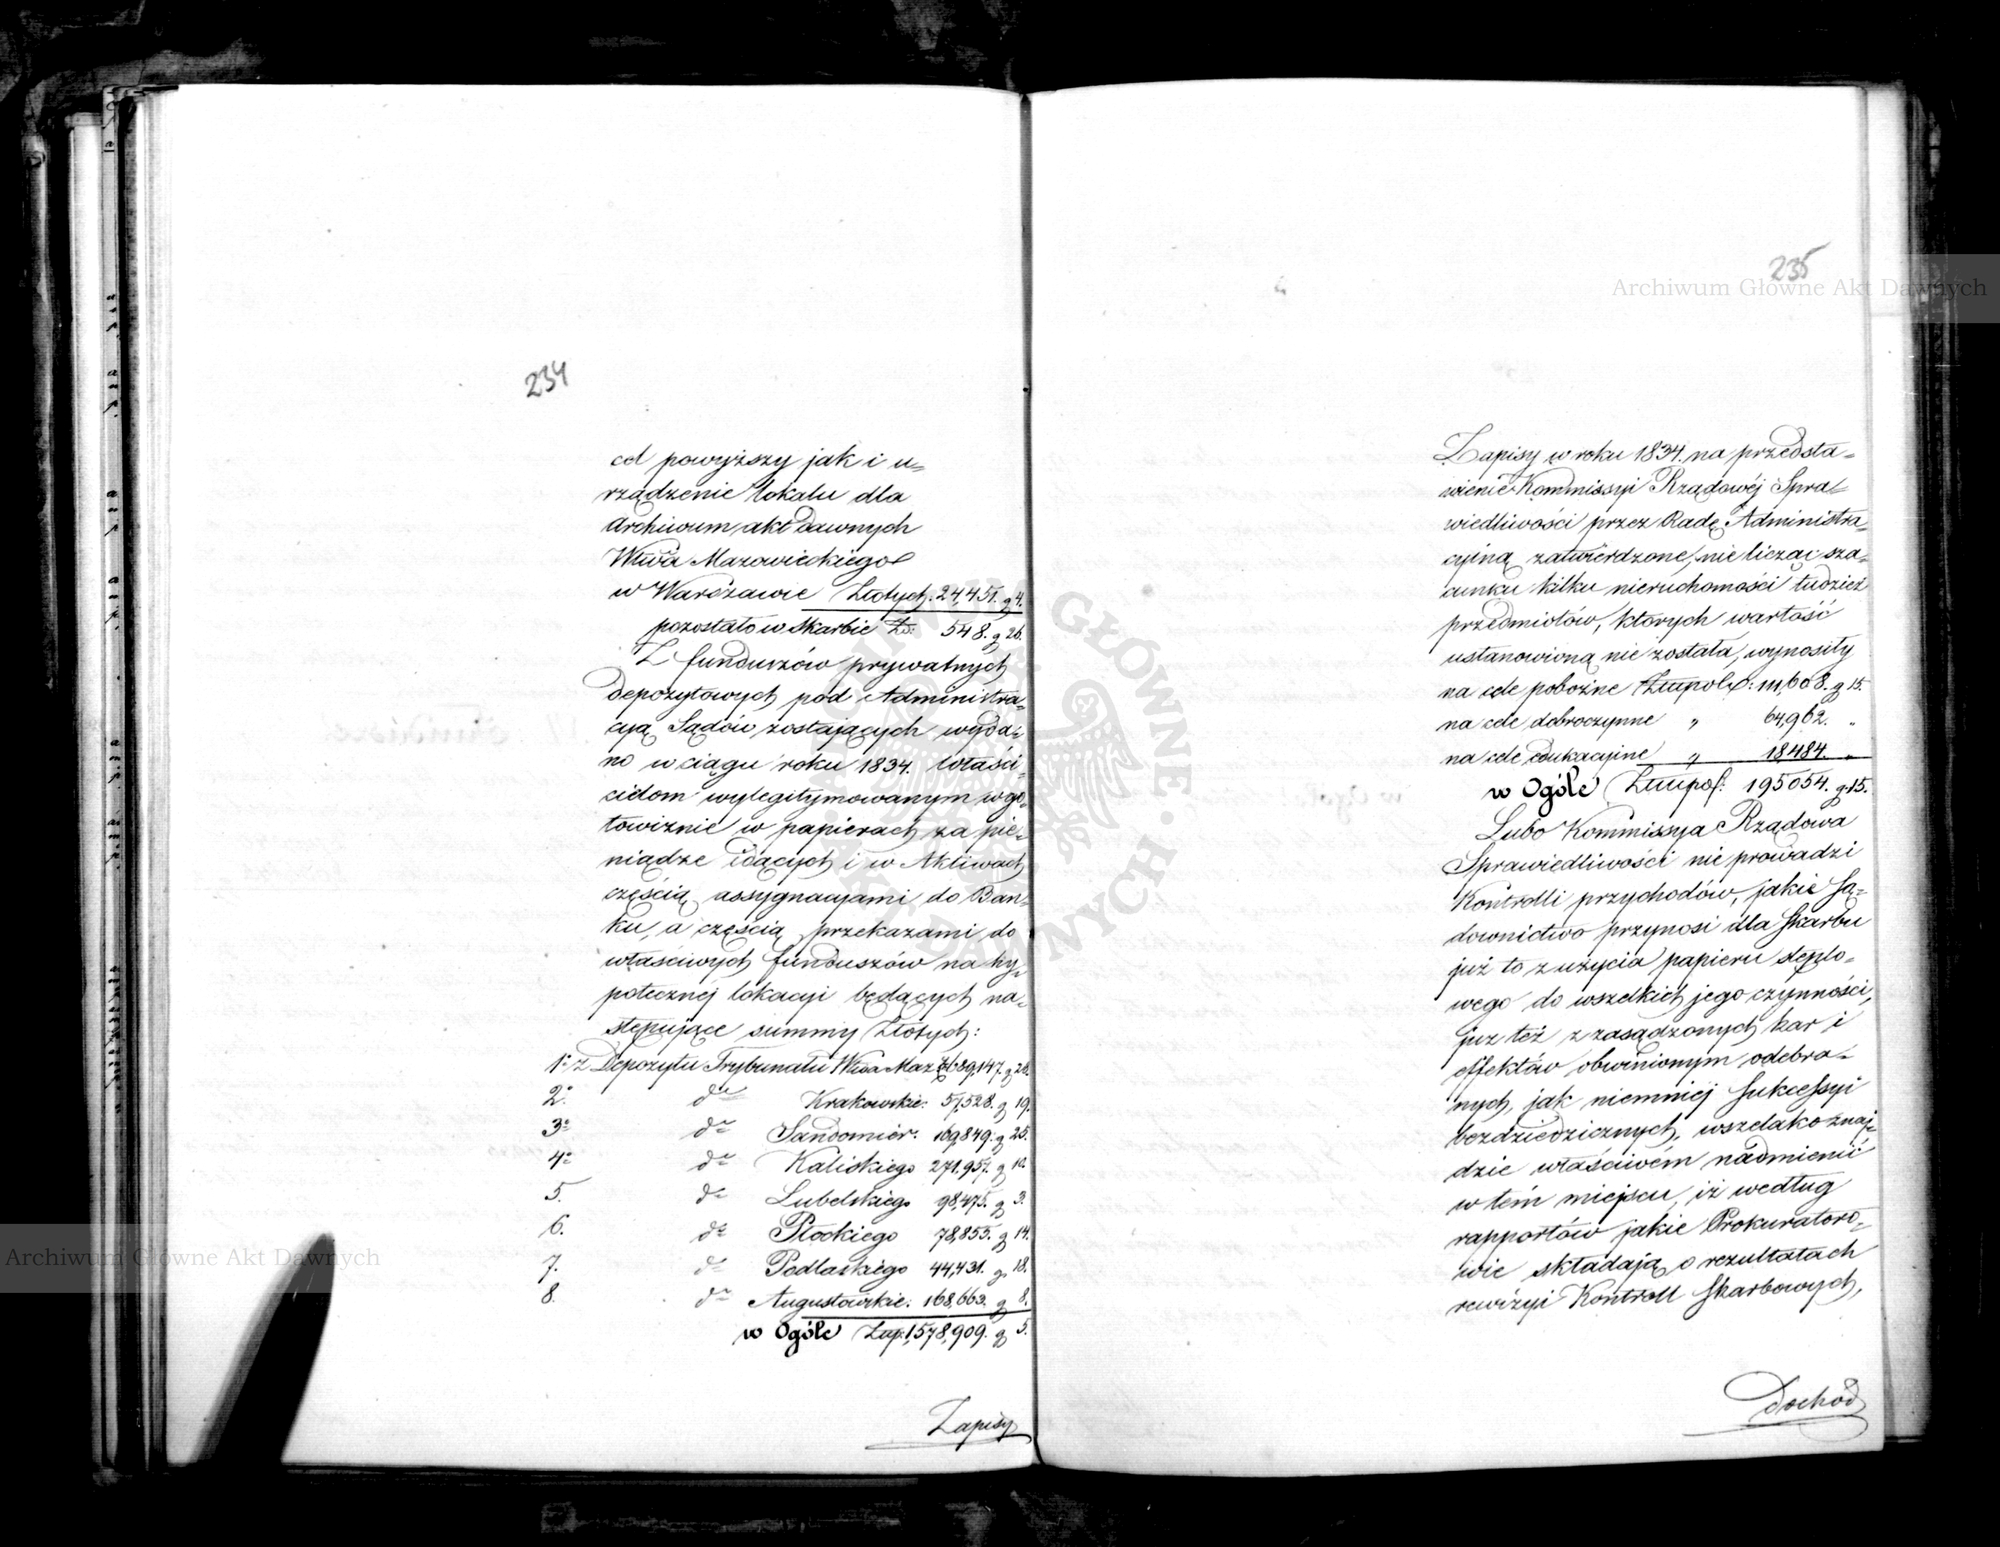 234
cel powyższy jak i u=
rządzenie lokalu dla
Archiwum akt dawnych
Wtwa Mazowieckiego
w Warszawie Złotych. 24,451. g 4.
pozostało w Skarbie Zł: 548. g 26.
Z funduszów prywatnych
depozytowych pod Administra=
cyą Sądów zostających wyda=
no w ciągu roku 1834. właści=
cielom wylegitymowanym w go=
towiznie w papierach za pie=
niądze idących i w Aktiwach
częścią assygnacyami do Ban=
ku, a częścią przekazami do
właściwych funduszów na hy=
potecznej lokacyi będących na=
stępujące summy Złotych:
1o z Depozytu Trybunału Wtwa Maz 689,147. g 28.
2o do Krakowskie: 57,528. g 19.
3o do Sandomier: 169,849. g 25.
4o do Kaliskiego 271,957. g 10.
5. do Lubelskiego 98,475. g 3.
6. do Płockiego 78,855. g 14.
7. do Podlaskiego 44,431. g 18.
8. do Augustowskie: 168,663. g 8.
w Ogóle Złp: 1,578,909. g 5.
Zapisy
235
Zapisy w roku 1834. na przedsta=
wienie Kommissyi Rządowéj Spra=
wiedliwości przez Radę Administra=
cyiną zatwierdzone, nie licząc sza=
cunku kilku nieruchomości tudzież
przedmiotów, których wartość
ustanowioną nie została, wynosiły
na cele pobożne Złtupol: 111,608. g 15.
na cele dobroczynne " 64,962. "
na cele edukacyine " 18484. "
w Ogóle Złtupol: 195054. g 15.
Lubo Kommissya Rządowa
Sprawiedliwości nie prowadzi
Kontrolli przychodów, jakie Są=
downictwo przynosi dla Skarbu
już to z użycia papieru stęplo=
wego do wszelkich jego czynności,
już też z zasądzonych kar i
effektów obwinionym odebra=
nych, jak niemniej Sukcessyi
bezdziedzicznych, wszelako znaj=
dzie właściwém nadmienić
w tém miejscu, iż według
rapportów jakie Prokuratoro=
wie składają o rezultatach
rewizyi Kontroll Skarbowych,
Dochód
Archiwum Główne Akt Dawnych
Archiwum Główne Akt Dawnych